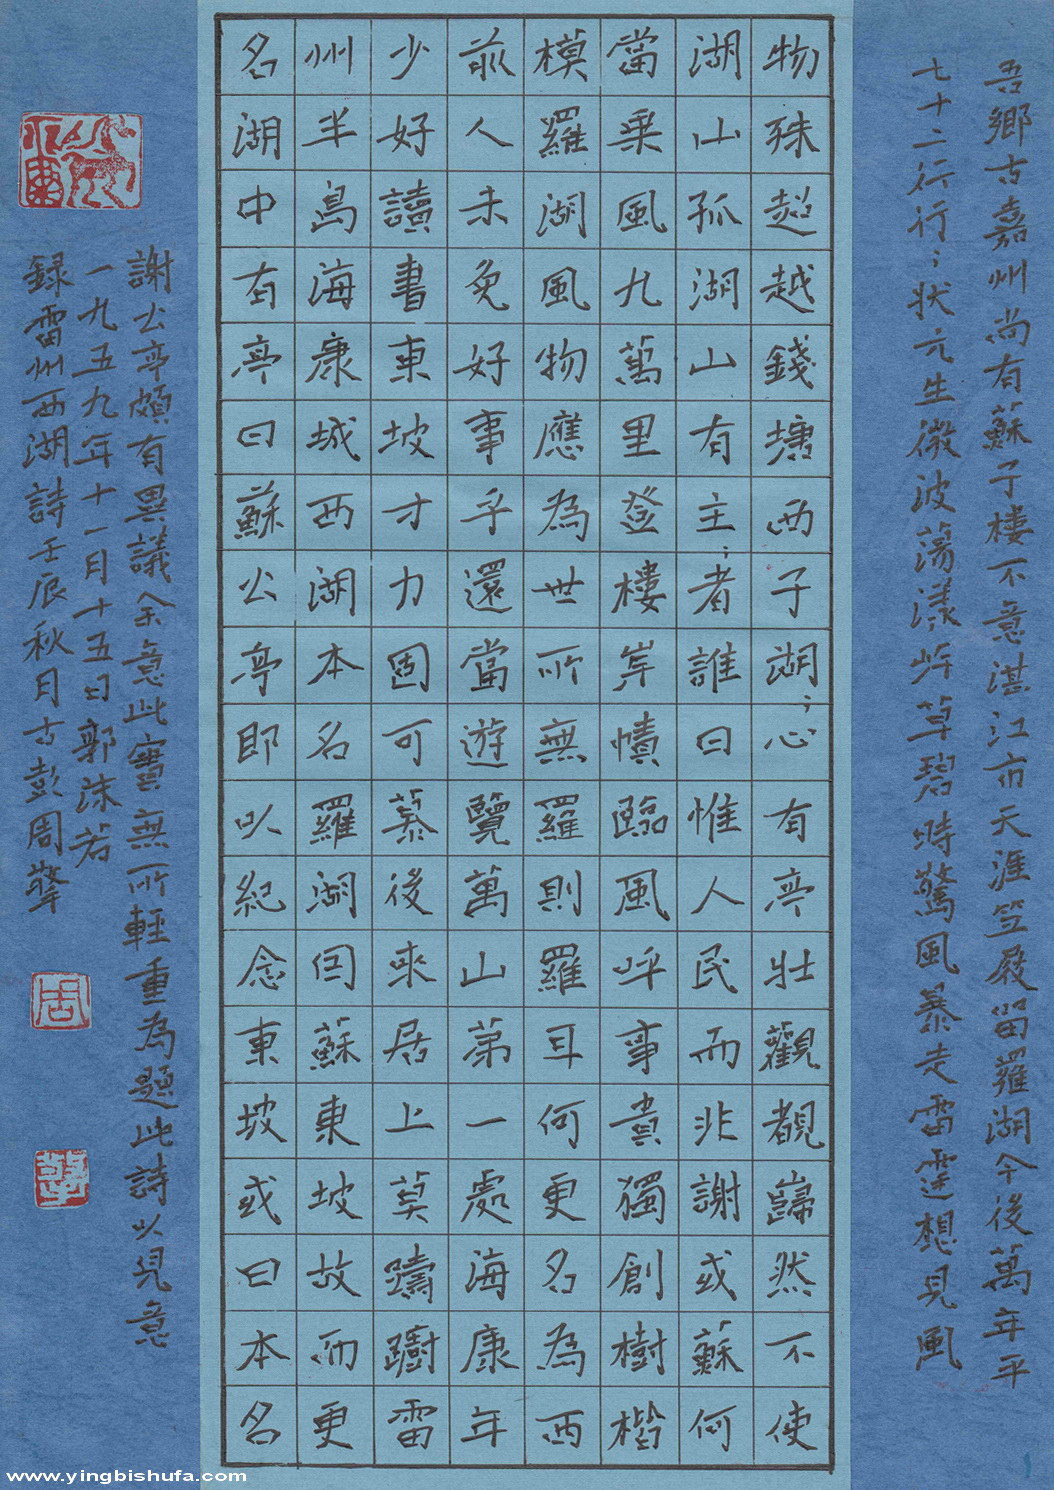 吾鄉古嘉州尚有蘇子樓不意湛江市天涯笠屐留羅湖今後萬年平
七十二行行〻狀元生微波蕩漾岸草碧時驚風暴走雷霆想見風
物殊超越錢塘西子湖〻心有亭壯觀覩巋然不使
湖山孤湖山有主〻者誰曰惟人民而非謝或蘇何
當乘風九萬里登樓岸幘臨風呼事貴獨創樹楷
模羅湖風物應為世所無羅則羅耳何更名為西
前人未免好事乎還當遊覽萬山第一處海康年
少好讀書東坡才力固可慕後來居上莫躊躇雷
州半島海康城西湖本名羅湖因蘇東坡故而更
名湖中有亭曰蘇公亭即以紀念東坡或曰本名
謝公亭頗有異議余意此實無所輕重為題此詩以見意
一九五九年十一月十五日郭沫若
録雷州西湖詩壬辰秋月古彭周擎
周
擎
www.yingbishufa.com